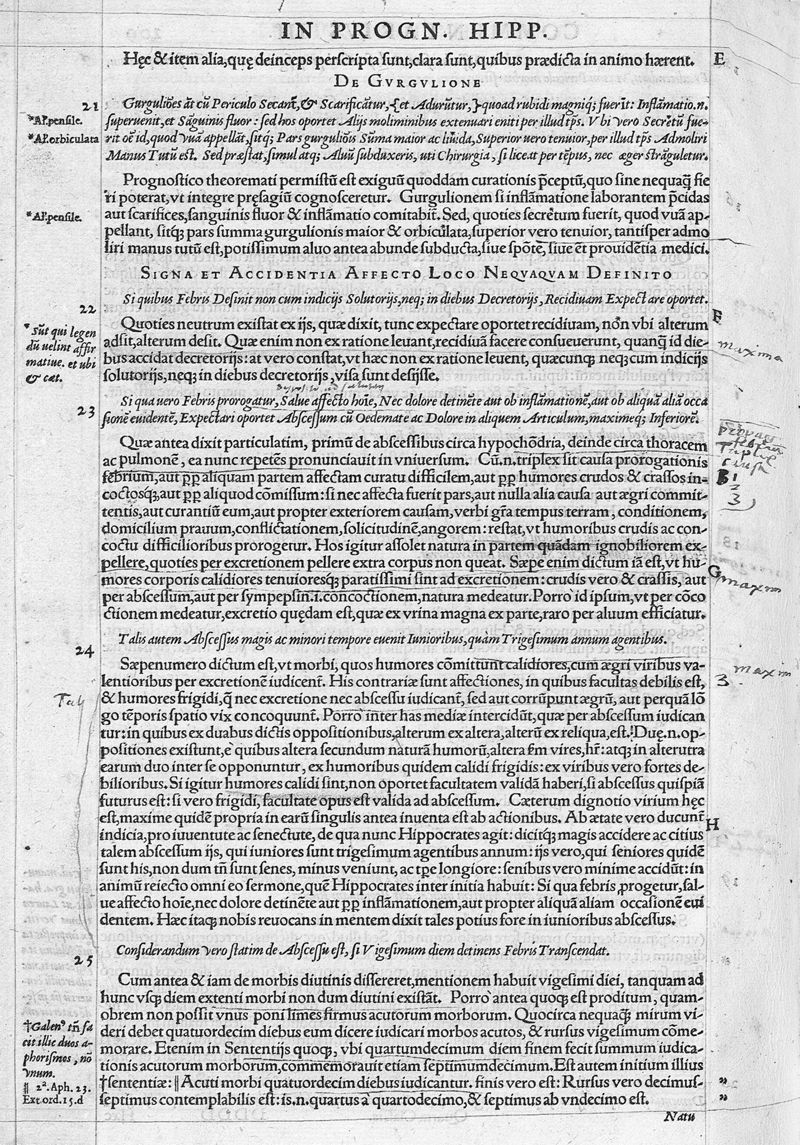 IN PROGN. HIPP.
Hęc & item alia, quę deinceps perscripta sunt, clara sunt, quibus prædicta in animo hærent.
E
DE GVRGVLIONE
21
Gurguliões āt cū Periculo Secant, & Scarificātur, {et Adurūtur,} quoad rubidi magniq; fuerīt: Inflāmatio.n.
*Al. pensile.
superuenit, et Sāguinis fluor: sed hos oportet Alijs moliminibus extenuari eniti per illud tp̄s. Vbi vero Secretū fue-
*Al. orbiculata
rit oē id, quod vuā appellāt, sitq; Pars gurguliōis Sūma maior ac liuida, Superior vero tenuior, per illud tp̄s Admoliri
Manus Tutū est. Sed præstat, simul atq; Aluū subduxeris, uti Chirurgia, si liceat per tēpus, nec æger strāguletur.
Prognostico theoremati permistū est exiguū quoddam curationis p̄ceptū, quo sine nequaq̄ fie
ri poterat, vt integre pręsagiū cognosceretur. Gurgulionem si inflāmatione laborantem p̄cidas
*Al. pensile.
aut scarifices, sanguinis fluor & inflāmatio comitabit̄. Sed, quoties secretum fuerit, quod vuā ap-
pellant, sitq; pars summa gurgulionis maior & orbiculata, superior vero tenuior, tantisper admo
liri manus tutū est, potissimum aluo antea abunde subducta, siue spōte, siue ēt prouidētia medici.
SIGNA ET ACCIDENTIA AFFECTO LOCO NEQVAQVAM DEFINITO
22
Si quibus Febris Desinit non cum indicijs Solutorijs, neq; in diebus Decretorijs, Recidiuam Expectare oportet.
F
* Sūt qui legen
dū uelint affir
matiue. et ubi
& cæt.
Quoties neutrum existat ex ijs, quæ dixit, tunc expectare oportet recidiuam, non vbi alterum
adsit, alterum desit. Quæ enim non ex ratione leuant, recidiuā facere consueuerunt, quanq̄ id die-
maxima
bus accidat decretorijs: at vero constat, vt hæc non ex ratione leuent, quæcunq; neq; cum indicijs
solutorijs, neq; in diebus decretorijs, visa sunt desijsse.
23
Si qua uero Febris prorogatur, Salue affecto hoīe, Nec dolore detinēte aut ob inflāmationē, aut ob aliquā aliā occa
sionē euidentē, Expectari oportet Abscessum cū Oedemate ac Dolore in aliquem Articulum, maximeq; Inferiorē.
Quæ antea dixit particulatim, primū de abscessibus circa hypochōdria, deinde circa thoracem
ac pulmonē, ea nunc repetēs pronunciauit in vniuersum. Cū.n.triplex sit causa prorogationis
triplex
causa
febrium, aut pp̄ aliquam partem affectam curatu difficilem, aut pp̄ humores crudos & crassos in-
1
coctosq;, aut pp̄ aliquod cōmissum: si nec affecta fuerit pars, aut nulla alia causa aut ægri commit-
3
tentis, aut curantiū eum, aut propter exteriorem causam, verbi gr̄a tempus terram, conditionem,
domicilium prauum, conflictationem, solicitudinē, angorem: restat, vt humoribus crudis ac con-
coctu difficilioribus prorogetur. Hos igitur assolet natura in partem quādam ignobiliorem ex-
pellere, quoties per excretionem pellere extra corpus non queat. Sæpe enim dictum iā est, vt hu-
G
mores corporis calidiores tenuioresq; paratissimi sint ad excretionem: crudis vero & crassis, aut
maxim
per abscessum, aut per sympepsin.i.concoctionem, natura medeatur. Porro id ipsum, vt per cōco
ctionem medeatur, excretio quędam est, quæ ex vrina magna ex parte, raro per aluum efficiatur.
24
Talis autem Abscessus magis ac minori tempore euenit Iunioribus, quàm Trigesimum annum agentibus.
Sæpenumero dictum est, vt morbi, quos humores cōmittunt calidiores, cum ægri viribus va-
maxim
lentioribus per excretionē iudicent. His contrariæ sunt affectiones, in quibus facultas debilis est,
3
& humores frigidi, q̄ nec excretione nec abscessu iudicant, sed aut corrūpunt ægrū, aut perquā lō
go tēporis spatio vix concoquunt. Porro inter has mediæ intercidūt, quæ per abscessum iudican
tur: in quibus ex duabus dictis oppositionibus, alterum ex altera, alterū ex reliqua, est. Duę.n.op-
positiones existunt, e quibus altera secundum naturā humorū, altera fm vires, hr̄: atq; in alterutra
earum duo inter se opponuntur, ex humoribus quidem calidi frigidis: ex viribus vero fortes de-
bilioribus. Si igitur humores calidi sint, non oportet facultatem validā haberi, si abscessus quispiā
futurus est: si vero frigidi, facultate opus est valida ad abscessum. Cæterum dignotio virium hęc
est, maxime quidē propria in earū singulis antea inuenta est ab actionibus. Ab ætate vero ducunt̄
H
indicia, pro iuuentute ac senectute, de qua nunc Hippocrates agit: dicitq; magis accidere ac citius
talem abscessum ijs, qui iuniores sunt trigesimum agentibus annum: ijs vero, qui seniores quidē
sunt his, non dum tn̄ sunt senes, minus veniunt, ac tp̄e longiore: senibus vero minime accidūt: in
animū reiecto omni eo sermone, quē Hippocrates inter initia habuit: Si qua febris progetur, sal-
ue affecto hoīe, nec dolore detinēte aut pp̄ inflāmationem, aut propter aliquā aliam occasionē eui
dentem. Hæc itaq; nobis reuocans in mentem dixit tales potius fore in iunioribus abscessus.
25
Considerandum vero statim de Abscessu est, si Vigesimum diem detinens Febris Transcendat.
Cum antea & iam de morbis diutinis dissereret, mentionem habuit vigesimi diei, tanquam ad
hunc vsq; diem extenti morbi non dum diutini existāt. Porro antea quoq; est proditum, quam-
obrem non possit vnus poni limes firmus acutorum morborum. Quocirca nequaq̄ mirum vi-
†Galenꝰ tn̄ fa
cit illic duos a-
phorismos, nō
vnum.
deri debet quatuordecim diebus eum dicere iudicari morbos acutos, & rursus vigesimum cōme-
morare. Etenim in Sententijs quoq;, vbi quartumdecimum diem finem fecit summum iudica-
tionis acutorum morborum, commemorauit etiam septimumdecimum. Est autem initium illius
‖ 2ᵃ. Aph. 23.
†sententiæ: ‖ Acuti morbi quatuordecim diebus iudicantur. finis vero est: Rursus vero decimus-
Ext ord. 15. d
septimus contemplabilis est: is.n. quartus a quartodecimo, & septimus ab vndecimo est.
Natu